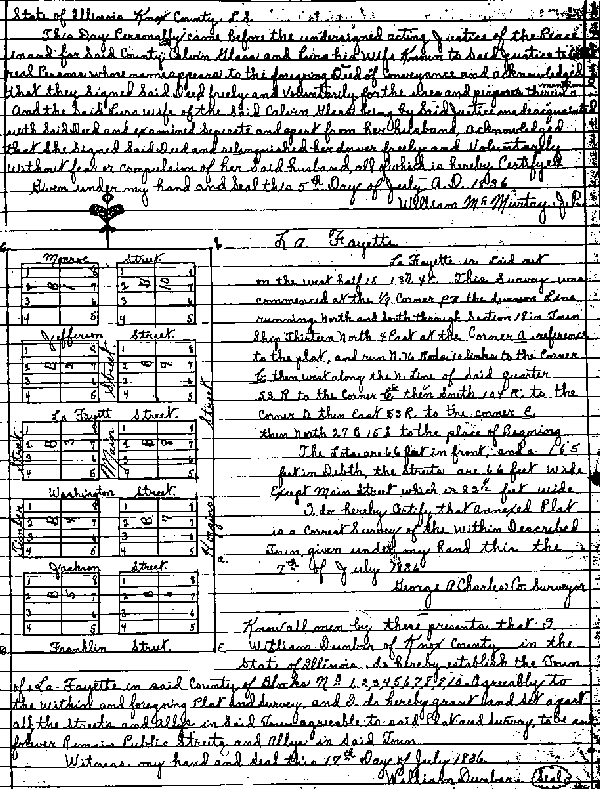 State of Illinois Knox County, S.S.
This Day Personally came before the undersigned acting Justice of the Peace
in and for Said County Calvin Glass and his Wife Known to Said Justice
real Persons whose names appears to the foregoing Deed of Conveyance and acknowledged
that they Signed Said Deed freely and Voluntarily for the uses and purposes therein
And the Said wife of the Said Calvin Glass being by Said Justice made acquainted
with Said Deed and examined Seperate and apart from her husband, acknowledged
that She Signed Said Deed and relinquished her dower freely and Voluntarily
Without fear or compulsion of her Said husband, all which is hereby Certifyed
Given under my hand and Seal this 5th Day of July A.D. 1836
William McMurtry, J.P.
La Fayette
La Fayette is Laid out
on the west half 18 13N 4E. This Survey was
commenced at the 1/4 Corner the division Line
running North and South through Section 18 in Town
Ship Thirteen North 4 East at the Corner a reference
to the plat, and run N. to the Corner
then west along the N. Line of said quarter
53 R to the Corner then South 104 R. to the
corner D then East 53 R. to the corner E
then North 27 to the place of Beginning
The Lots are 66 feet in front, and 165
feet in Debth, the streets are 66 feet wide
Except Main Street which is feet wide
I do hereby Certify that annexed Plat
is a Correct Survey of the Within Described
Town, given under my hand this the
7th of July 1836
George A Charles Co. Surveyor
Monroe Street
Jefferson Street
La Fayett Street
Washington Street
Jackson Street
Franklin Street
Main Street
Street
Street
Know all men by these presents that I
William Dunbar of Knox County in the
State of Illinois do hereby establish the Town
of La Fayette in said County of Blocks No 1,2,3,4,5,6,7,8,9,10 Agreeably to
the within and foregoing Plat and Survey, and I do hereby grant and set apart
all the Streets and Alleys in Said Town agreeable to said Plat and Survey, to be and
forever Remain Public Streets and Alleys in Said Town
Witness my hand and seal this 17th Day of July 1836
William Dunbar Seal